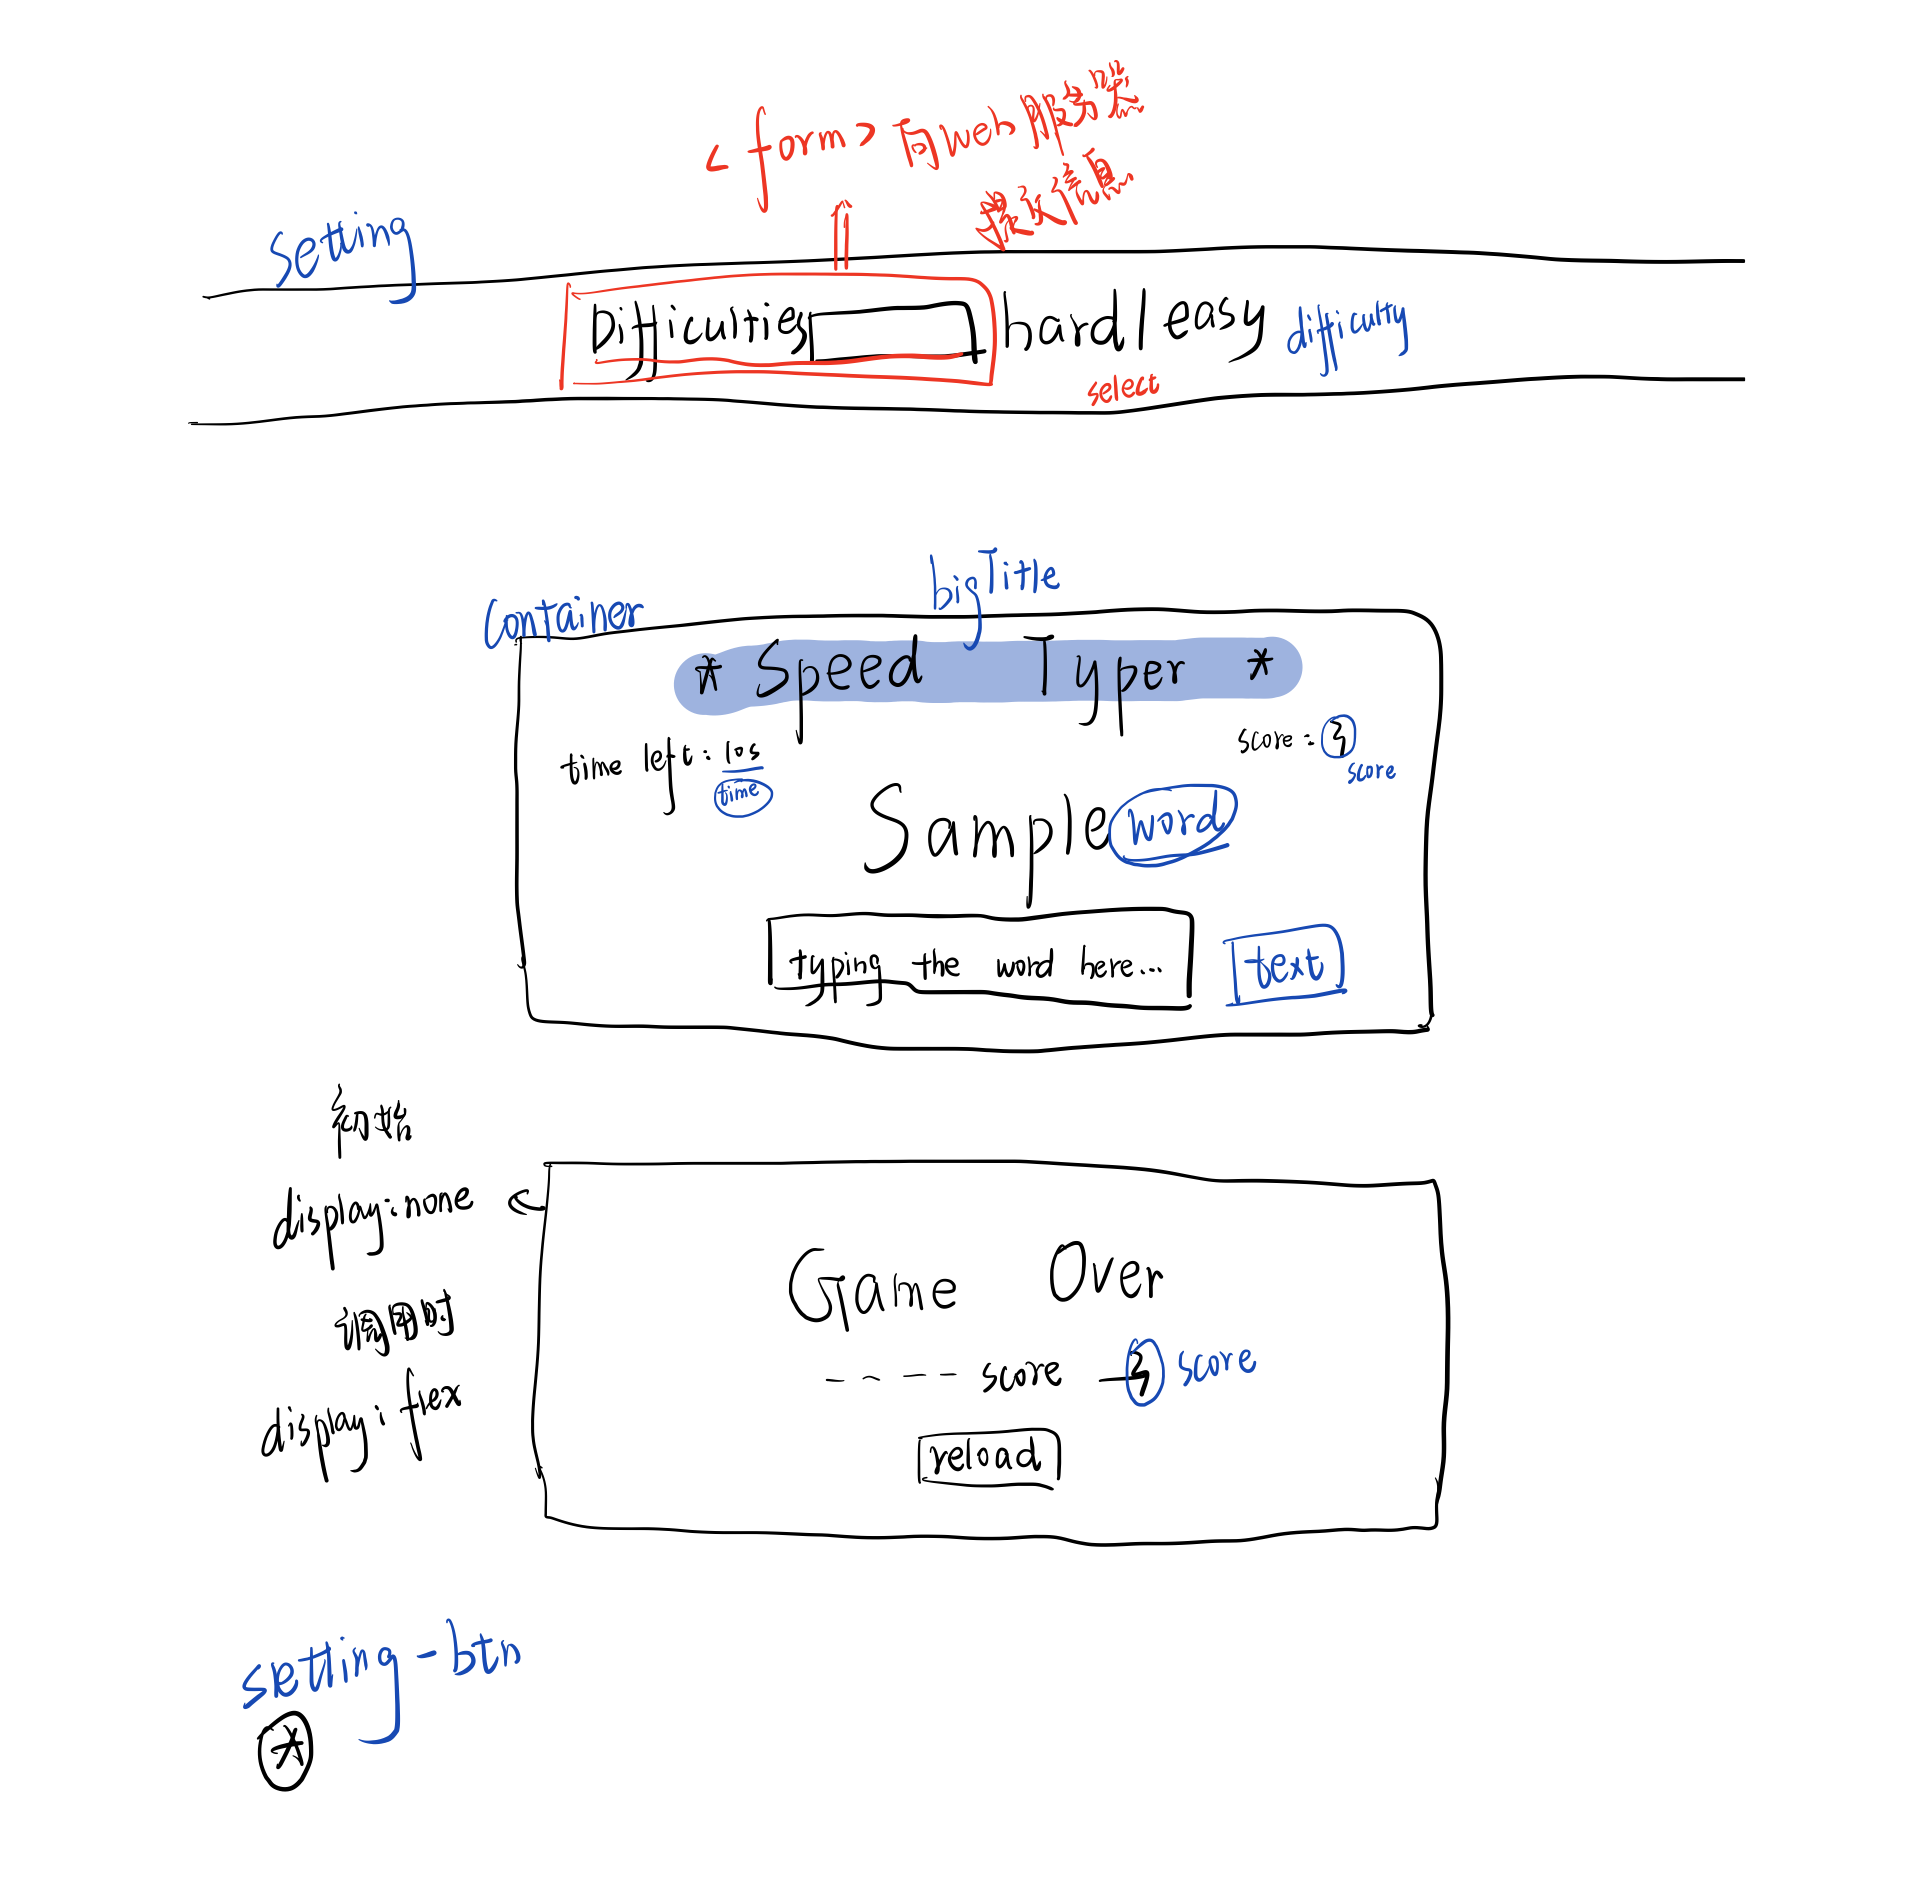 <form> 向web服务器
提交信息
setting
Difficulties hard | easy difficulty
select
bigTitle
container
* Speed Typer *
time left: 10s
time
score: 3
score
Sample word
typing the word here...
text
初始
display: none
调用时
display: flex
Game Over
---- score 3 score
reload
setting-btn
*